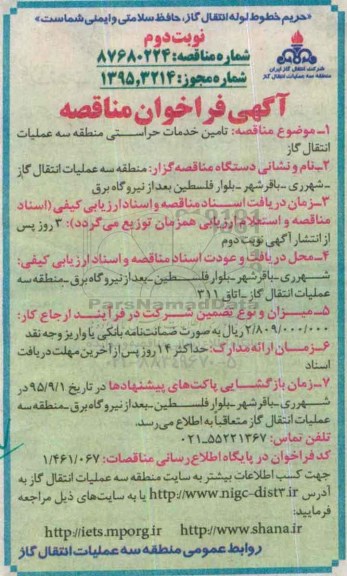 «حریم خطوط لوله انتقال گاز، حافظ سلامتی و ایمنی شماست»
نوبت دوم
شماره مناقصه: ۸۷۶۸۰۲۲۴
شماره مجوز: ۱۳۹۵,۳۲۱۴
شرکت انتقال گاز ایران
منطقه سه عملیات انتقال گاز
آگهی فراخوان مناقصه
۱ـ موضوع مناقصه: تامین خدمات حراستی منطقه سه عملیات
انتقال گاز
۲ـ نام و نشانی دستگاه مناقصه گزار: منطقه سه عملیات انتقال گاز
ـ شهرری ـ باقرشهر ـ بلوار فلسطین بعد از نیروگاه برق
۳ـ زمان دریافت اسناد مناقصه و اسناد ارزیابی کیفی (اسناد
مناقصه و استعلام ارزیابی همزمان توزیع می گردد): ۳ روز پس
از انتشار آگهی نوبت دوم
۴ـ محل دریافت و عودت اسناد مناقصه و اسناد ارزیابی کیفی:
شهرری ـ باقرشهر ـ بلوار فلسطین ـ بعد از نیروگاه برق ـ منطقه سه
عملیات انتقال گاز ـ اتاق ۳۱۱
ParsNamadData
۵ـ میزان و نوع تضمین شرکت در فرآیند ارجاع کار:
۲/۸۰۹/۰۰۰/۰۰۰ ریال به صورت ضمانت نامه بانکی یا واریز وجه نقد
۶ـ زمان ارائه مدارک: حداکثر ۱۴ روز پس از آخرین مهلت دریافت
اسناد
۷ـ زمان بازگشایی پاکت های پیشنهادها در تاریخ ۹۵/۹/۱ در
شهرری ـ باقرشهر ـ بلوار فلسطین ـ بعد از نیروگاه برق ـ منطقه سه
عملیات انتقال گاز متعاقبا به اطلاع می رسد.
تلفن تماس: ۵۵۲۲۱۳۶۷ـ۰۲۱
کد فراخوان در پایگاه اطلاع رسانی مناقصات: ۱/۴۶۱/۰۶۷
جهت کسب اطلاعات بیشتر به سایت منطقه سه عملیات انتقال گاز به
آدرس http://www.nigc-dist3.ir یا به سایت های ذیل مراجعه
فرمایید:
http://iets.mporg.ir http://www.shana.ir
روابط عمومی منطقه سه عملیات انتقال گاز